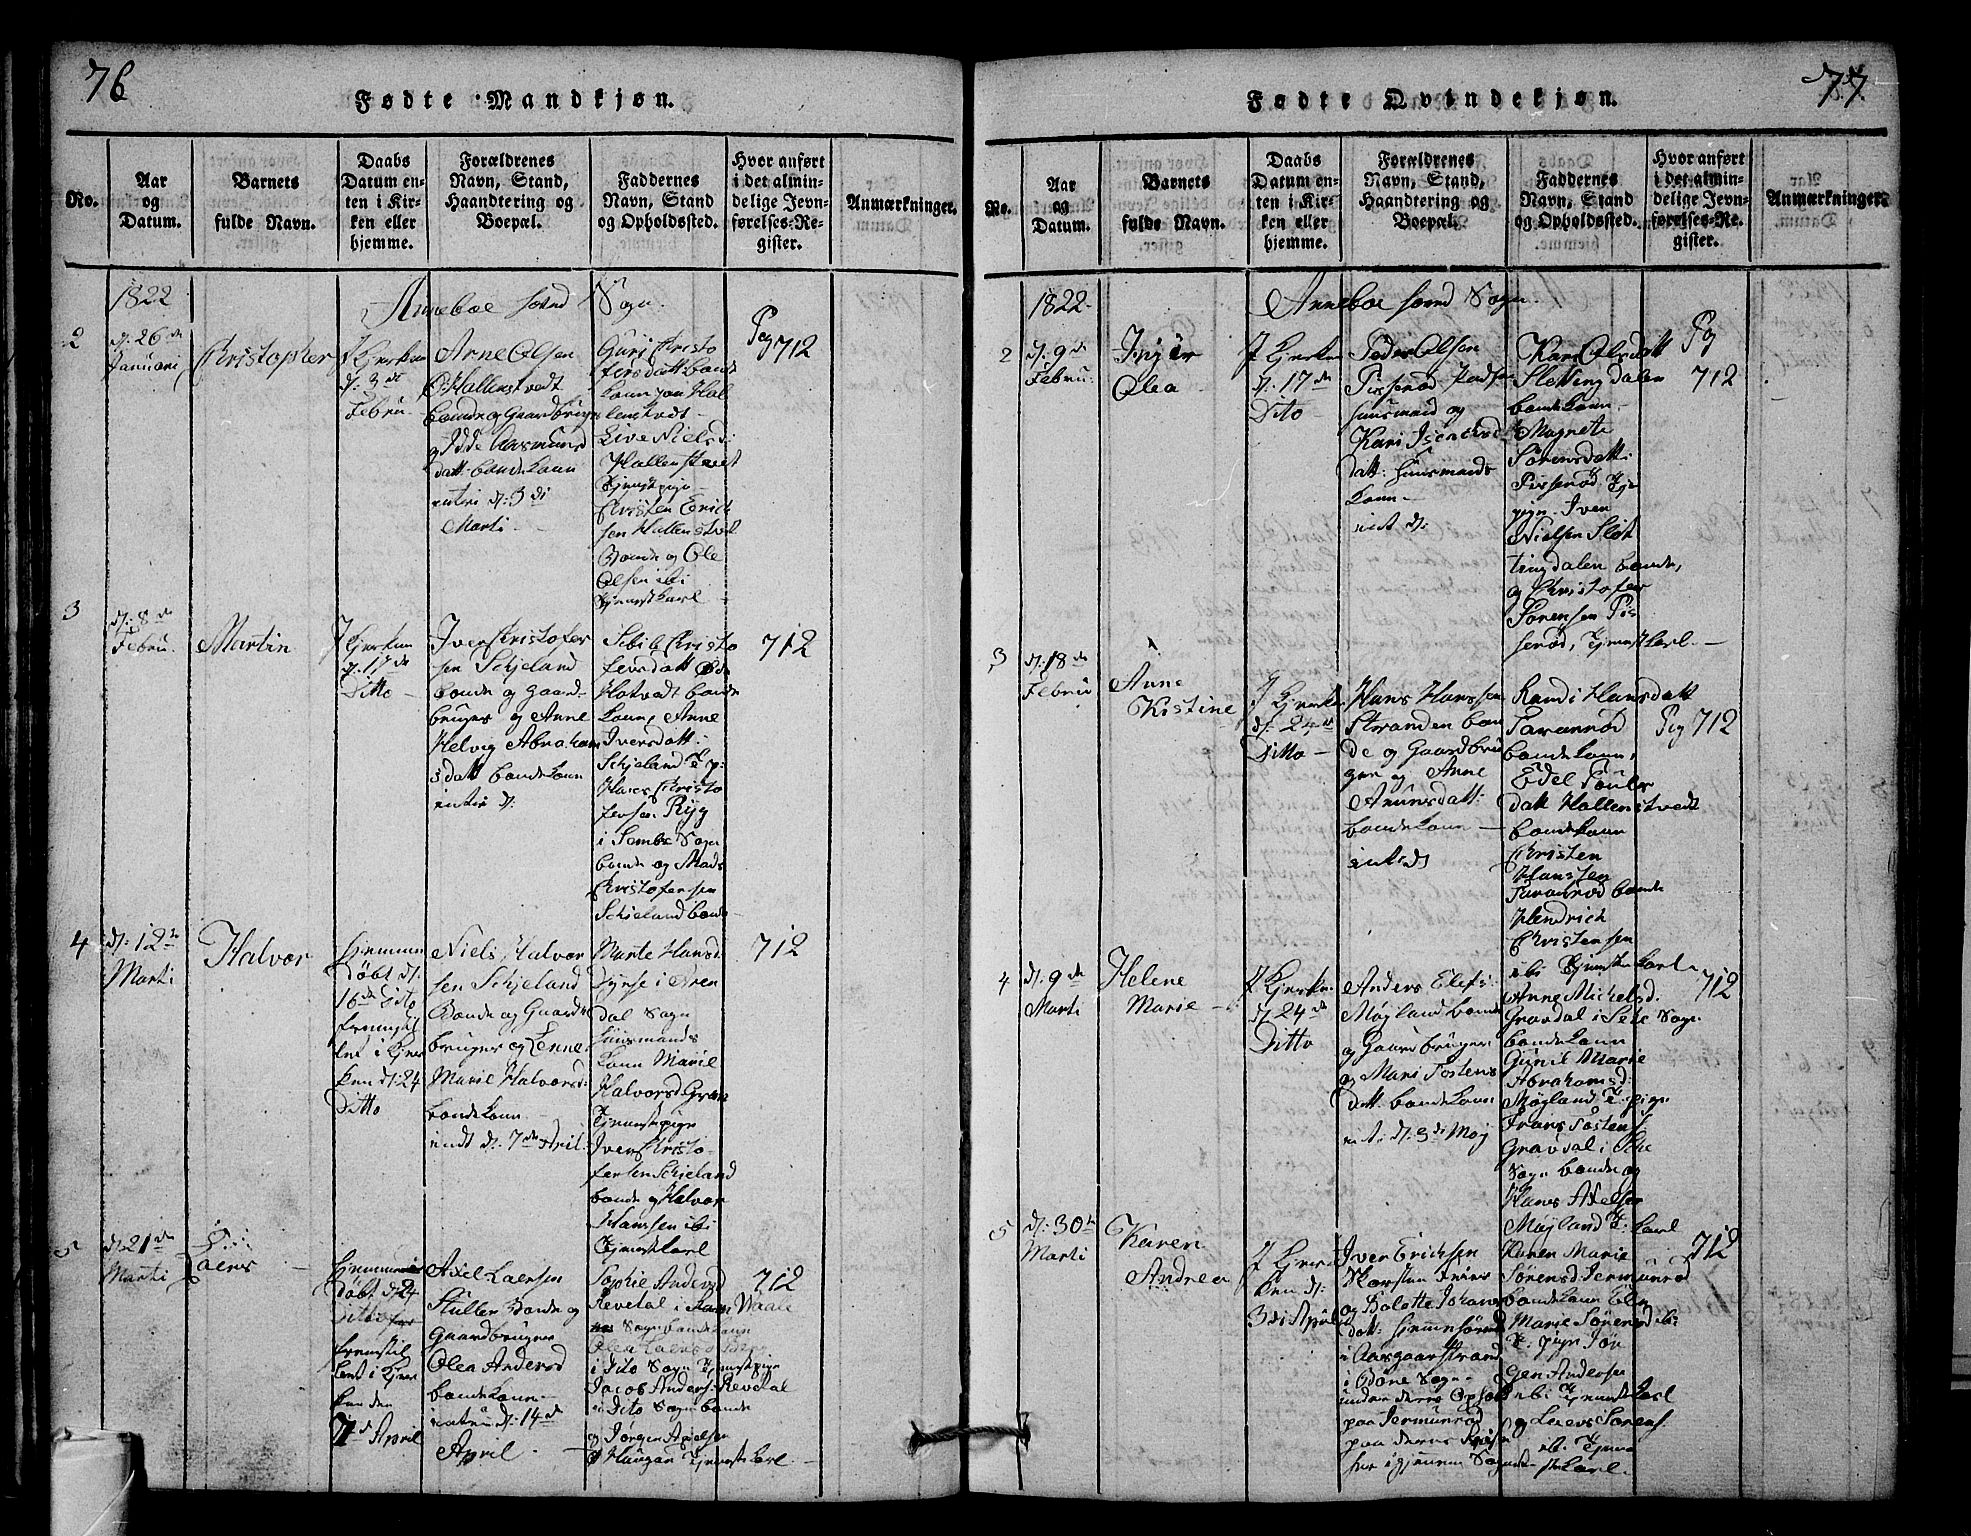 76
Fødte Mandkjøn.
No.
Aar
og
Datum.
Barnets
fulde Navn.
Daabs
Datum en-
ten i Kir-
ken eller
hjemme.
Forældrenes
Navn, Stand,
Haandtering og
Boepæl.
Faddernes
Navn, Stand
og Opholdssted.
Hvor anført
i det almin-
delige Jevn-
førelses-Re-
gister.
Anmærkninger.
1822
Anneboe Sogn
2
d: 26de
Januari
Christopher
I Kirken
d: 3de
Febru
Arne Olsen
Hallenstvedt
bonde og Gaardbruger
datt: bondekone
d: 3di
Marti
Guri Christo
fersdatt bonde
kone paa Hal
lenstvedt
Live Nielsd:
Hallenstvedt
Tjenstpige
Christen Erich
sen Hallenstvedt
Bonde og Ole
Olsen ibi
Tjenstkarl
Pag 712
3
d: 8de
Febru.
Martin
I Kirken
d. 17de
Ditto
Iver Christofer
sen Schjeland
bonde og Gaard
bruger og Anne
Helvig Abraham
sdatt bondekone
Sibil Christo
fersdatt
Hotvedt bonde
kone, Anne
Iversdatt:
Schjeland T. p:
Hans Christo
fersen Ryg
i Sembs Sogn
bonde og Mads
Christofersen
Schjeland bonde
712
4
d: 12te
Marti
Halvor
Hjemme
døbt d:
16de Dito
fremstil
let i Kir
ken d: 24
Ditto
Niels Halvor
sen Schjeland
Bonde og Gaard
bruger og Lenne
Marie Halvorsd:
bondekone
d. 7de April
Marte Hansd.
Sogn
Huusmands
kone Marie
Halvorsd
Tjenstpige
Iver Christo
fersen Schjeland
bonde og Halvor
Hanssen ibi
Tjenstkarl
712
5
d. 21de
Marti
Laers
Hjemme
døbt d: 24
Ditto
fremstil
let i Kir
ken den
7de April
Axel Laersen
Stulen Bonde og
Gaardbruger
Olea Andersd
bondekone
d: 14de
April
Sophie Andersd
Revetal i Waale
Sogn bondekone
Olea Laersd
i Dito Sogn Tjenstpige
Jacob Anders: Revetal
i Dito Sogn bonde
og Jørgen Axelsen
Haugan Tjenstkarl
712
77
Fødte Qvindekjøn.
No.
Aar
og
Datum.
Barnets
fulde Navn.
Daabs
Datum en-
ten i Kir-
ken eller
hjemme.
Forældrenes
Navn, Stand,
Haandtering og
Boepæl.
Faddernes
Navn, Stand
og Opholdssted.
Hvor anført
i det almin-
delige Jevn-
førelses-Re-
gister.
Anmærkninger.
1822
Anneboe Sogn
2
d: 9de
Febru:
Ingier
Olea
I Kirken
d. 17de
Dito
Peder Olsen
Pisserød
Huusmand og
Kari
datt: Huusmands
kone
Kari Olsdatt
Slettingdalen
bondekone
Magnete
Sørensdatt:
Pisserød Tje
pige Iven
Nielsen Slet
tingdalen bonde,
og Christofer
Sørensen Pis
serød, Tjenstkarl
Pag
712
3
d: 18de
Febru
Anne
Kistine
I Kirken
d: 24de
Ditto
Hans Hanssen
Stranden bon
de og Gaardbru
ger og Anne
datt:
bondekone
Randi Hansdatt
bondekone
Edel Pouls
datt Hallenstvedt
bondekone
Christen
Hanssen
bonde
Hendrich
Christensen
ibi Tjenstekarl
Pag 712
4
d. 9de
Marti
Helene
Marie
I Kirken
d 24de
Ditto
Anders Elefs:
Møjland bonde
og Gaardbruger
og Mari Tostens
datt. bondekone
d. 3di Maj
Anne Michelsd.
Gravdal i Sogn
bondekone
Gunil Marie
Abrahamsd:
Møjland T. pige
Frans Tosten
Gravdal i
Sogn bonde og
Hans Axelsen
Møjland T. karl
712
5
d: 30te
Marti
Karen
Andrea
I Kir
ken d:
3di April
Iver Erichsen
og Bolette Johans
datt:
i Aasgaardstrand
i Borre Sogn
paa Jermunrød
Karen Marie
Sørensd Jermunrød
bondekone Elen
Marie Sørensd ib:
T. pige Jør
gen Andersen
ibi Tjenstekarl
og Laers Sørens
ib. Tjene
stkarl
712